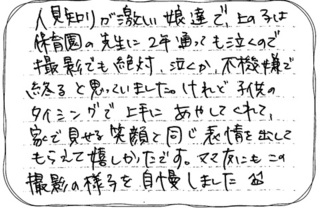 人見知りが激しい娘達で、上の子は
保育園の先生に2年通っても泣くので
撮影でも絶対、泣くか、不機嫌で
終ると思っていました。けれど子供の
タイミングで上手にあやしてくれて、
家で見せる笑顔と同じ表情を出して
もらえて嬉しかったです。ママ友にもこの
撮影の様子を自慢しました